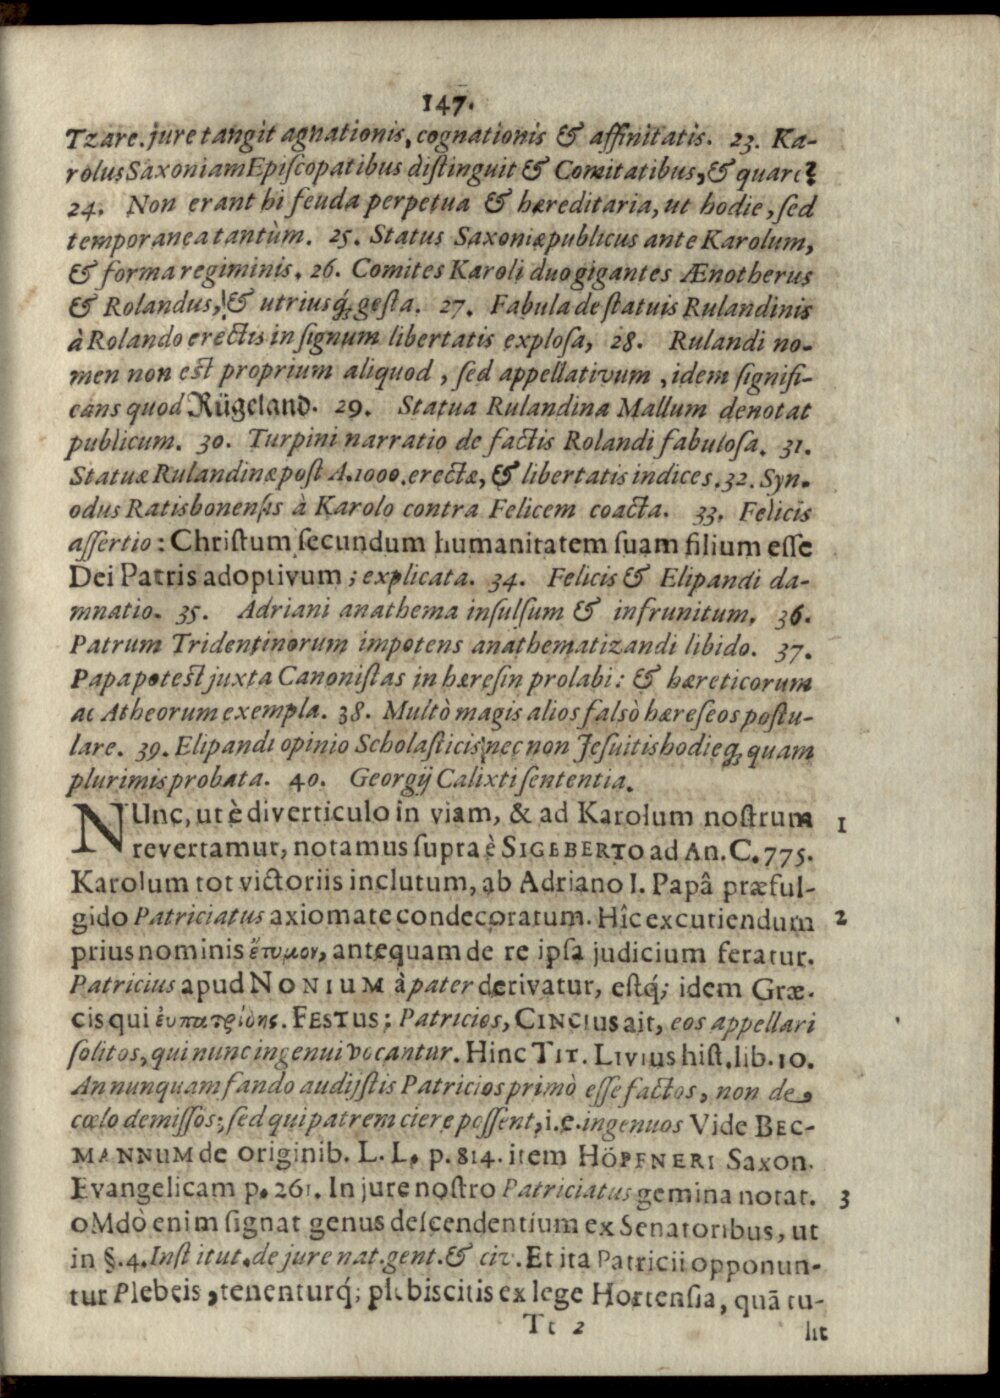 147.
Tzare. jure tangit agnationis, cognationis & affinitatis. 23. Ka-
rolus Saxoniam Episcopatibus distinguit & Comitatibus, & quare?
24. Non erant hi feuda perpetua & hæreditaria, ut hodie, sed
temporanea tantùm. 25. Status Saxoniæ publicus ante Karolum,
& forma regiminis. 26. Comites Karoli duo gigantes Ænotherus
& Rolandus, & utriusq́; gesta. 27. Fabula de statuis Rulandinis
à Rolando erectis in signum libertatis explosa, 28. Rulandi no-
men non est proprium aliquod, sed appellativum, idem signifi-
cans quod Rügeland. 29. Statua Rulandina Mallum denotat
publicum. 30. Turpini narratio de factis Rolandi fabulosa. 31.
Statuæ Rulandinæ post A. 1000. erectæ, & libertatis indices. 32. Syn-
odus Ratisbonensis à Karolo contra Felicem coacta. 33. Felicis
assertio: Christum secundum humanitatem suam filium esse
Dei Patris adoptivum; explicata. 34. Felicis & Elipandi da-
mnatio. 35. Adriani anathema insulsum & infrunitum. 36.
Patrum Tridentinorum impotens anathematizandi libido. 37.
Papa potest juxta Canonistas in hæresin prolabi: & hæreticorum
ac Atheorum exempla. 38. Multò magis alios falsò hæreseos postu-
lare. 39. Elipandi opinio Scholasticis nec non Jesuitis hodieq́; quam
plurimis probata. 40. Georgij Calixti sententia.
NUnc, ut è diverticulo in viam, & ad Karolum nostrum 1
revertamur, notamus supra è SIGEBERTO ad An. C. 775.
Karolum tot victoriis inclutum, ab Adriano I. Papâ præful-
gido Patriciatus axiomate condecoratum. Hîc excutiendum 2
prius nominis ἔτυμον, antequam de re ipsa judicium feratur.
Patricius apud NONIUM à pater derivatur, estq́; idem Græ-
cis qui ἐυπατρίδης. FESTUS; Patricios, CINCIUS ait, eos appellari
solitos, qui nunc ingenui vocantur. Hinc TIT. LIVIUS hist. lib. 10.
An nunquam fando audijstis Patricios primò esse factos, non de
cœlo demissos; sed qui patrem ciere possent, i.e. ingenuos Vide BEC-
MANNUM de originib. L. L. p. 814. item HÖPFNERI Saxon.
Evangelicam p. 261. In jure nostro Patriciatus gemina notat. 3
oMdò enim signat genus descendentium ex Senatoribus, ut
in §. 4. Institut. de jure nat. gent. & civ. Et ita Patricii opponun-
tur Plebeis, tenenturq́; plebiscitis ex lege Hortensia, quã tu-
Tt 2 lit